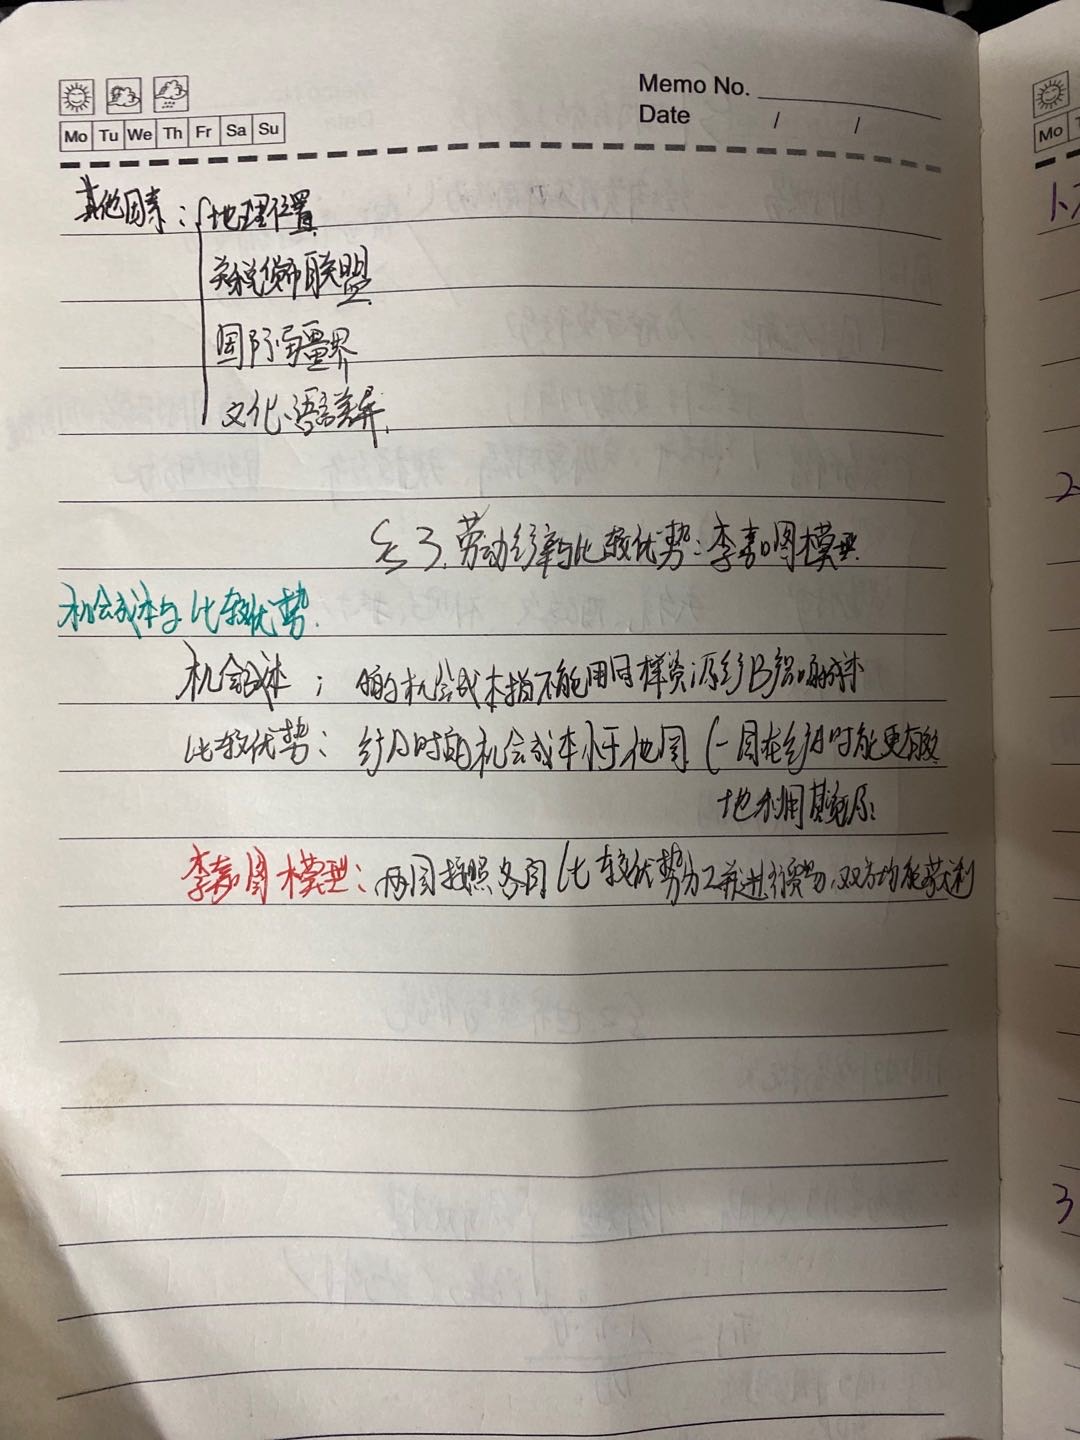 Memo No.
Date / /
Mo Tu We Th Fr Sa Su
其他因素：地理位置
关税货币联盟
国际与疆界
文化、语言差异
§3.劳动生产率与比较优势：李嘉图模型
机会成本与比较优势
机会成本：的机会成本指不能用同样资源生产B
比较优势：生产A时的机会成本小于他国(一国在生产A时能更有效
地利用其资源
李嘉图模型：两国按照各自比较优势分工并进行贸易，双方均能获利
Mo
2
3